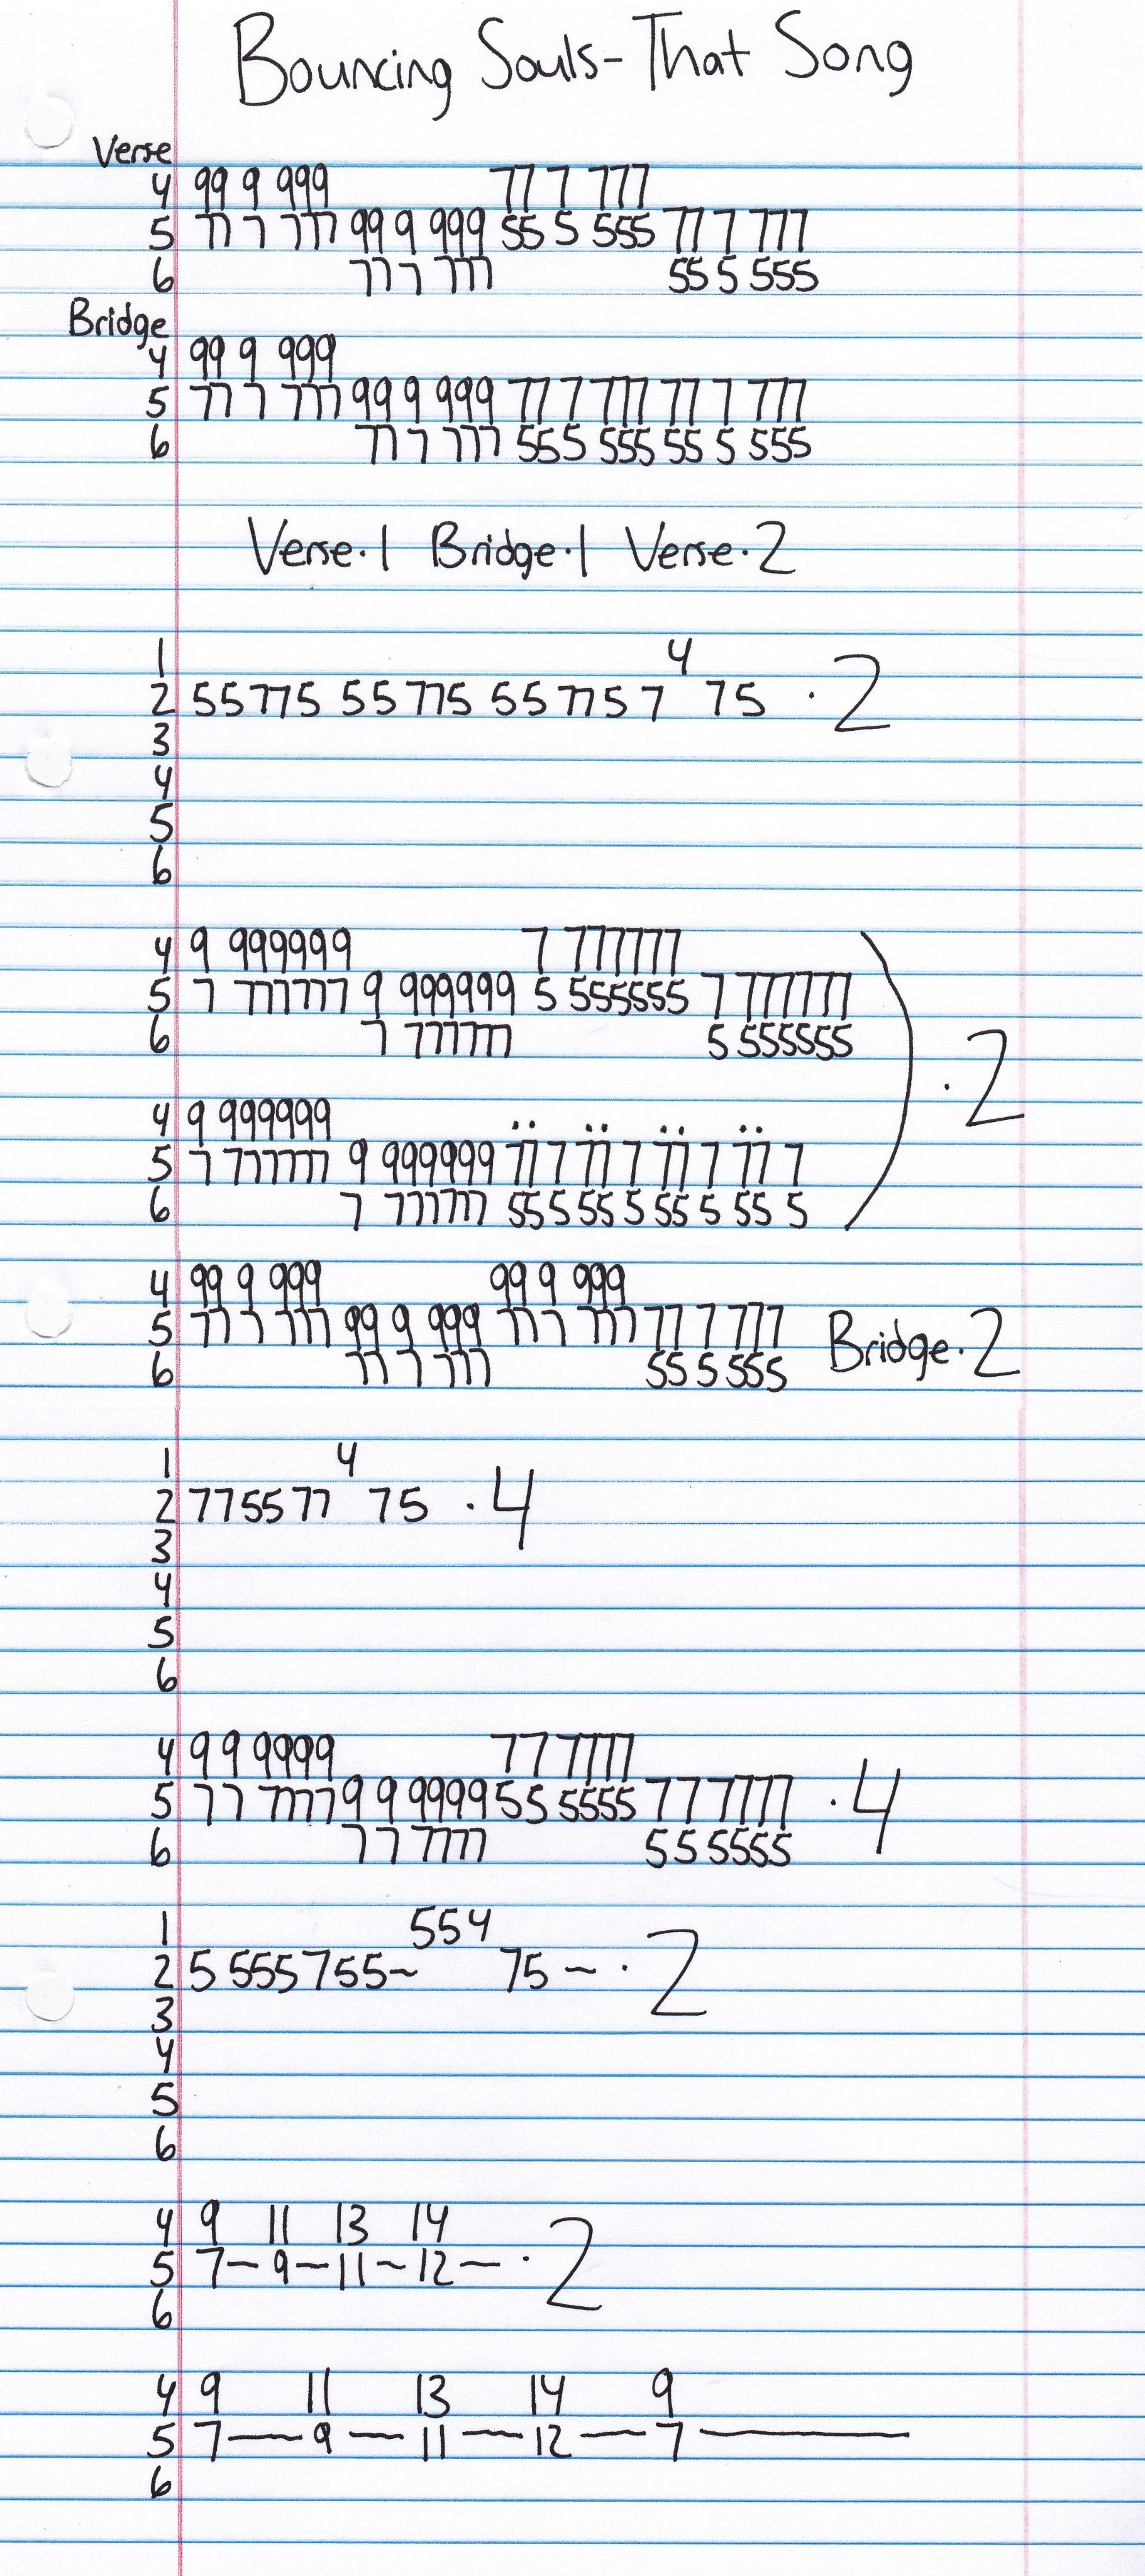 Bouncing Souls - That Song
Verse
4 99 9 999 77 7 777
5 77 7 777 99 9 999 55 5 555 77 7 777
6 77 7 777 55 5 555
Bridge
4 99 9 999
5 77 7 777 99 9 999 77 7 777 77 7 777
6 77 7 777 55 5 555 55 5 555
Verse·1 Bridge·1 Verse·2
1 4
2 55775 55775 557757 75 ·2
3
4
5
6
4 9 999999 7 777777
5 7 777777 9 999999 5 555555 7 777777
6 7 777777 5 555555
·2
4 9 999999
5 7 777777 9 999999 77 7 77 7 77 7 77 7
6 7 777777 55 5 55 5 55 5 55 5
4 99 9 999 99 9 999
5 77 7 777 99 9 999 77 7 777 77 7 777 Bridge·2
6 77 7 777 55 5 555
1 4
2 775577 75 ·4
3
4
5
6
4 9 9 9999 7 7 7777
5 7 7 7777 9 9 9999 5 5 5555 7 7 7777 ·4
6 7 7 7777 5 5 5555
1 554
2 5 555755~ 75 ~ ·2
3
4
5
6
4 9 11 13 14
5 7 — 9 — 11 ~ 12 — ·2
6
4 9 11 13 14 9
5 7 — 9 — 11 — 12 — 7 —
6